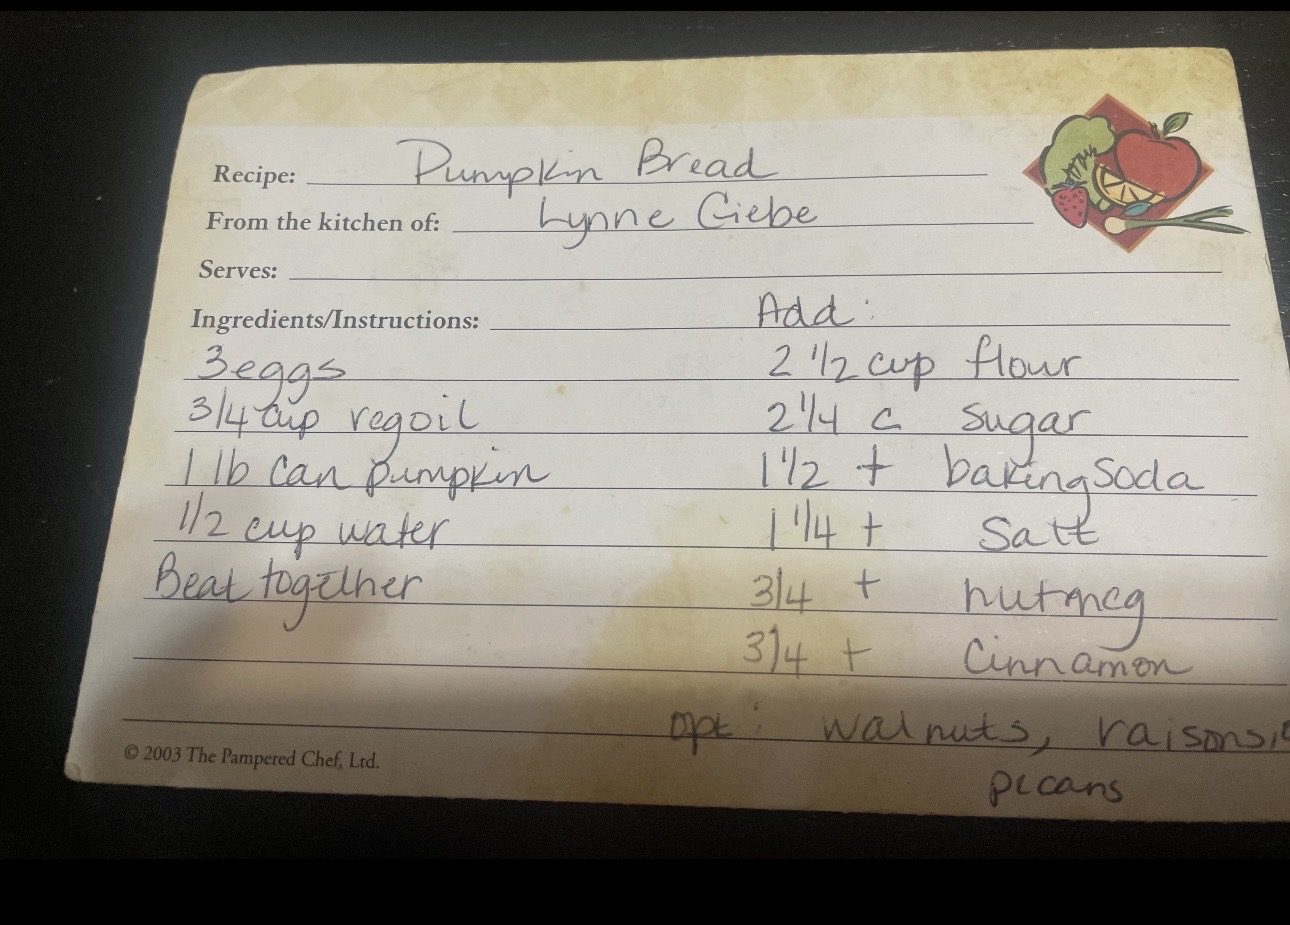 Recipe: Pumpkin Bread
From the kitchen of: Lynne Giebe
Serves:
Ingredients/Instructions:
3 eggs
3/4 cup vegoil
1 lb can pumpkin
1/2 cup water
Beat together
Add:
2 1/2 cup flour
2 1/4 c sugar
1 1/2 t baking soda
1 1/4 t Salt
3/4 t nutmeg
3/4 t Cinnamon
opt: walnuts, raisons,
pecans
© 2003 The Pampered Chef, Ltd.